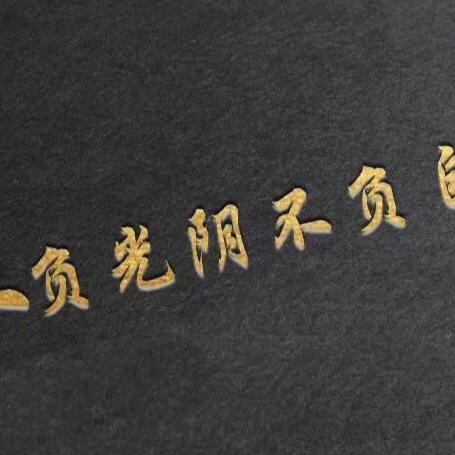 负光阴不负